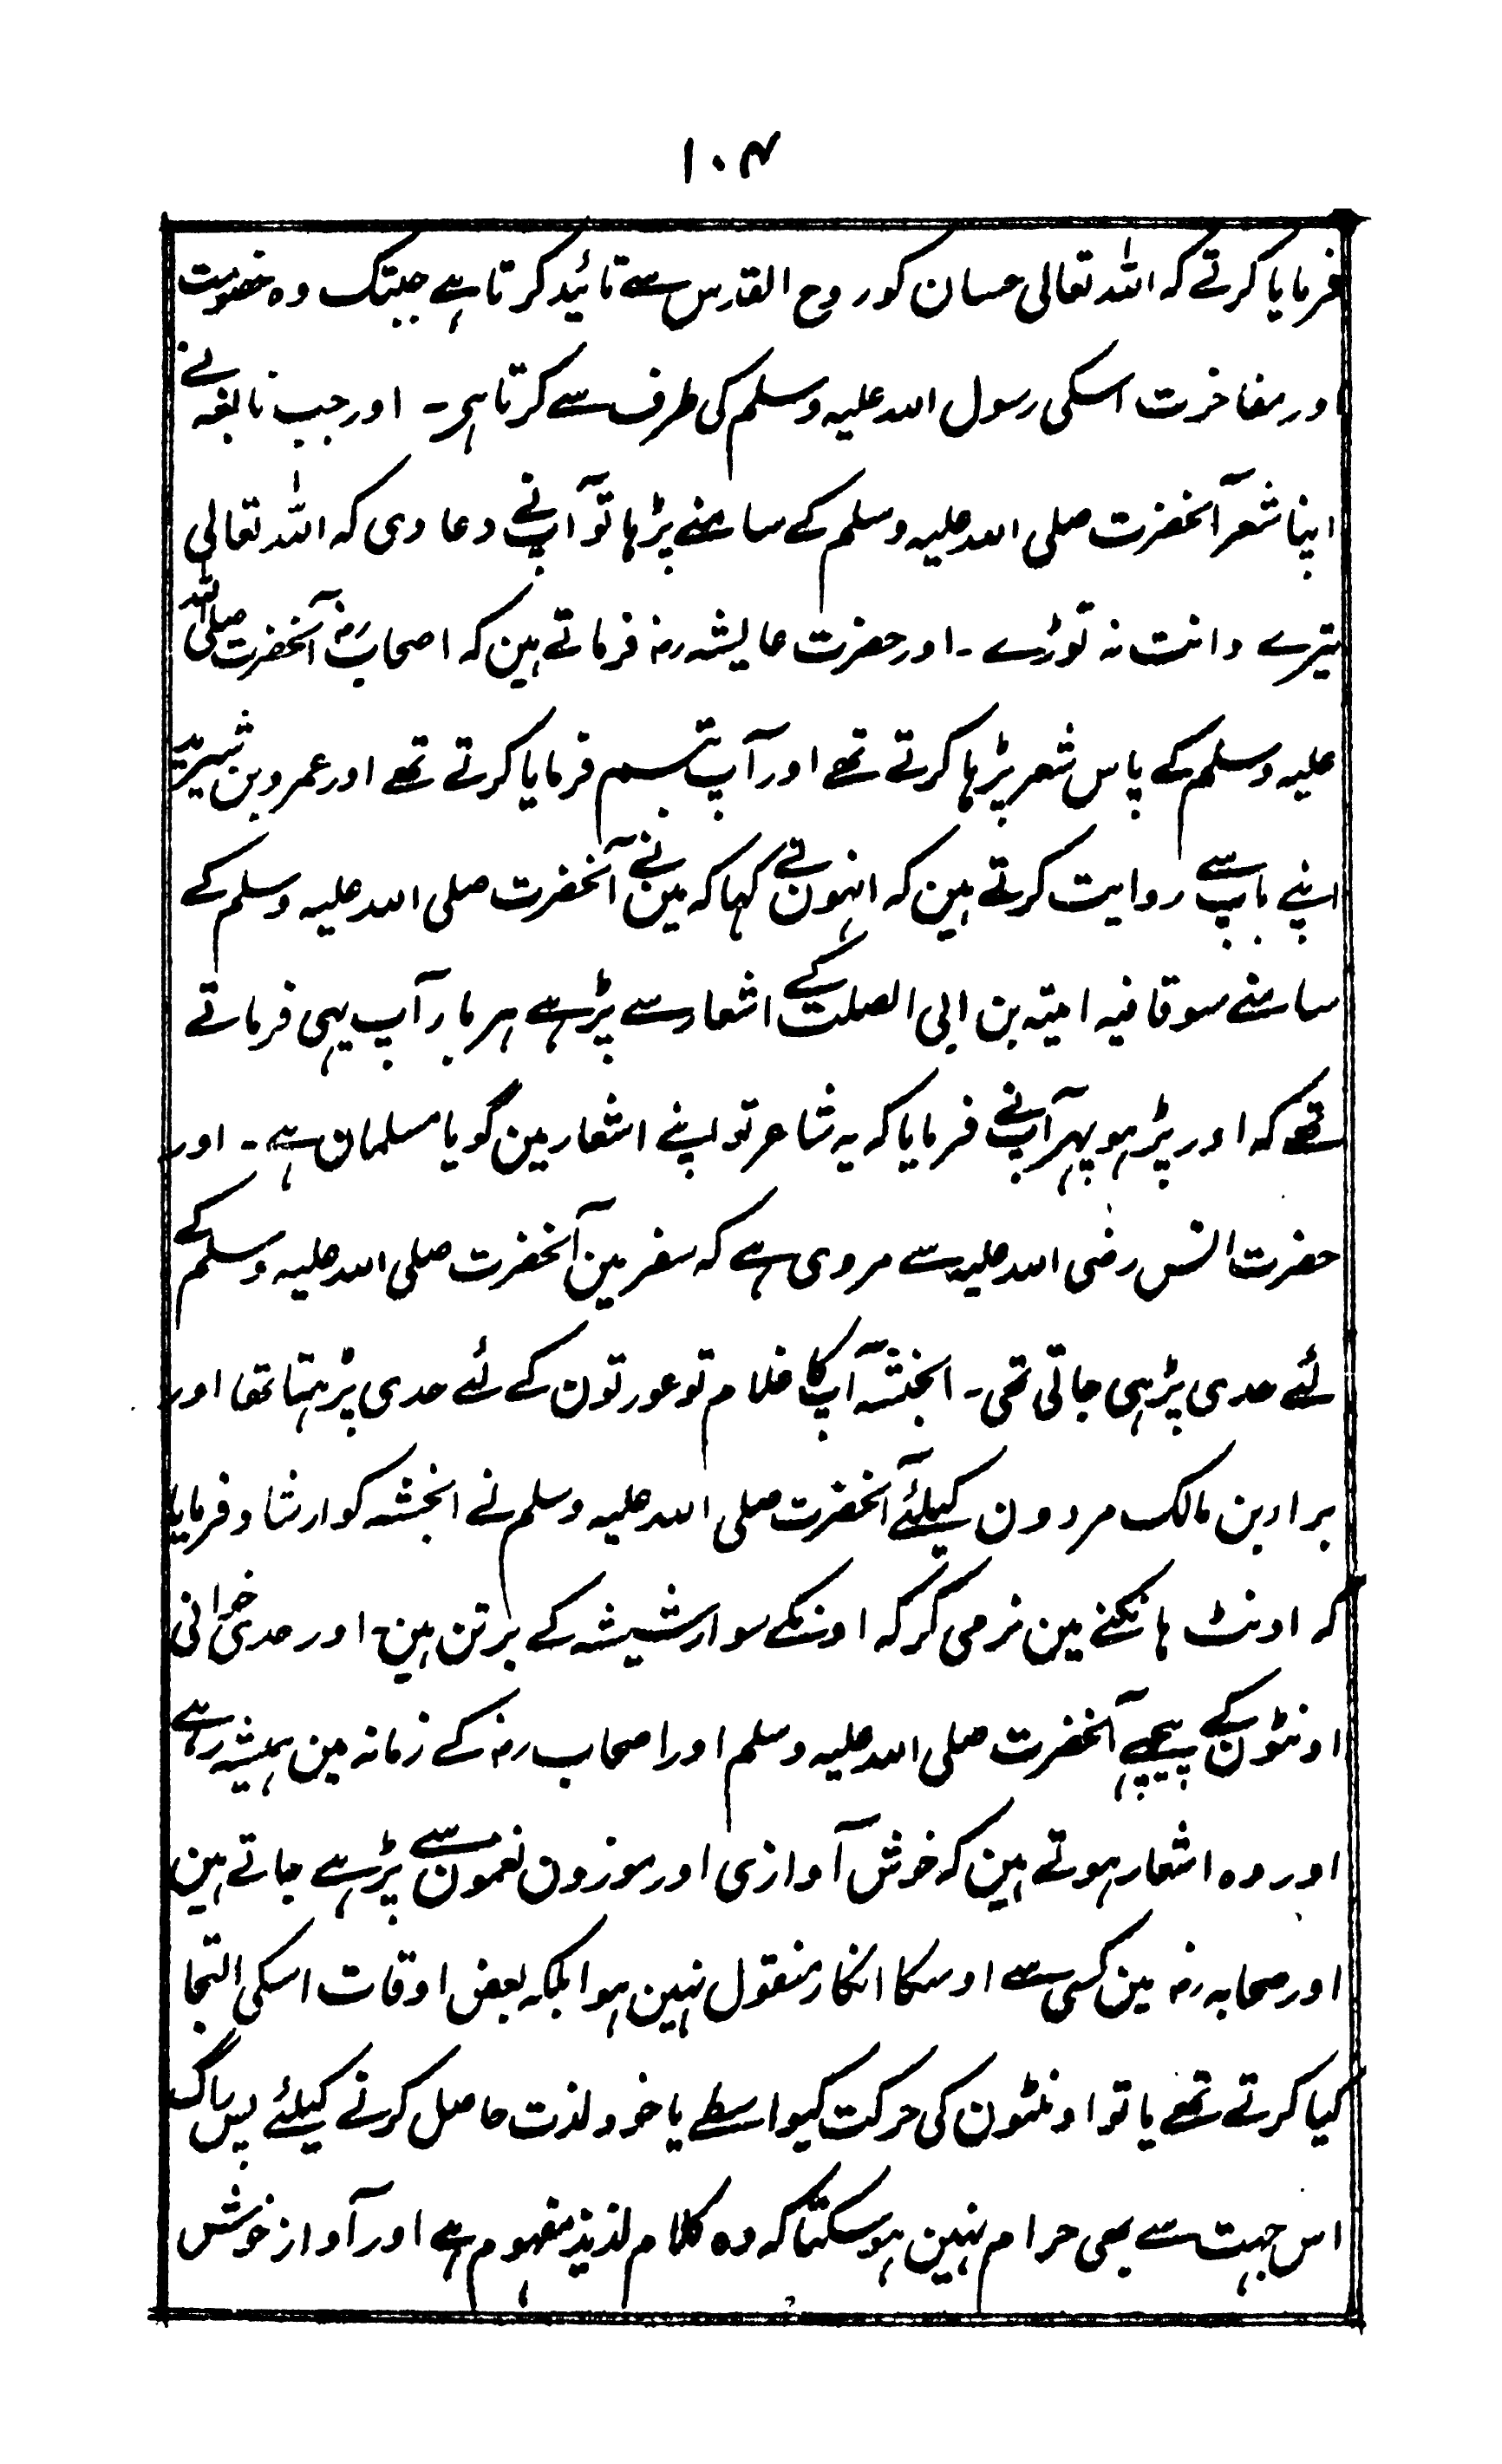 ۱۰۴
فرمایا کرتے کہ اللہ تعالی حسان کو روح القدس سے تائید کرتا ہے جبتک وہ خصومت
اور مفاخرت اسکی رسول اللہ علیہ وسلم کی طرف سے کرتا ہی۔ اور جب نابغہ نے
اپنا شعر آنحضرت صلی اللہ علیہ وسلم کے سامنے پڑہا تو آپنے دعا دی کہ اللہ تعالی
تیرے دانت نہ توڑے۔ اور حضرت عایشہ رض فرماتے ہین کہ اصحاب رض آنحضرت صلی اللہ
علیہ وسلم کے پاس شعر پڑہا کرتے تھے اور آپ تبسم فرمایا کرتے تھے اور عمرو بن شرید
اپنے باپ سے روایت کرتے ہین کہ انہون نے کہا کہ مین نے آنحضرت صلی اللہ علیہ وسلم کے
سامنے سو قافیہ امیتہ بن ابی الصلت کے اشعار سے پڑہے ہر بار آپ یہی فرماتے
تھے کہ اور پڑہو پہر آپنے فرمایا کہ یہ شاعر تو اپنے اشعار مین گویا مسلمان ہے۔ اور
حضرت انس رضی اللہ علیہ سے مروی ہے کہ سفر مین آنحضرت صلی اللہ علیہ وسلم کے
لئے حدی پڑہی جاتی تھی۔ انجشہ آپ کا غلام تو عورتون کے لئے حدی پڑہتا تھا اور
براد بن مالک مردون کیلئے آنحضرت صلی اللہ علیہ وسلم نے انجشہ کو ارشاد فرمایا
کہ اونٹ ہانکنے مین نرمی کر کہ اونکے سوار شیشہ کے برتن ہین۔ اور حدی خوانی
اونٹون کے پیچہے آنحضرت صلی اللہ علیہ وسلم اور اصحاب رض کے زمانہ مین ہمیشہ رہی ہے
اور وہ اشعار ہوتے ہین کہ خوش آوازی اور موزون نغمون سے پڑہے جاتے ہین
اور صحابہ رض مین کسی سے اوسکا انکار منقول نہین ہوا بلکہ بعض اوقات اسکی التجا
کیا کرتے تھے یا تو اونٹون کی حرکت کیواسطے یا خود لذت حاصل کرنے کیلئے پس راگ
اس جہت سے بھی حرام نہین ہو سکتا کہ وہ کلام لذیذ مفہوم ہے اور آواز خوش